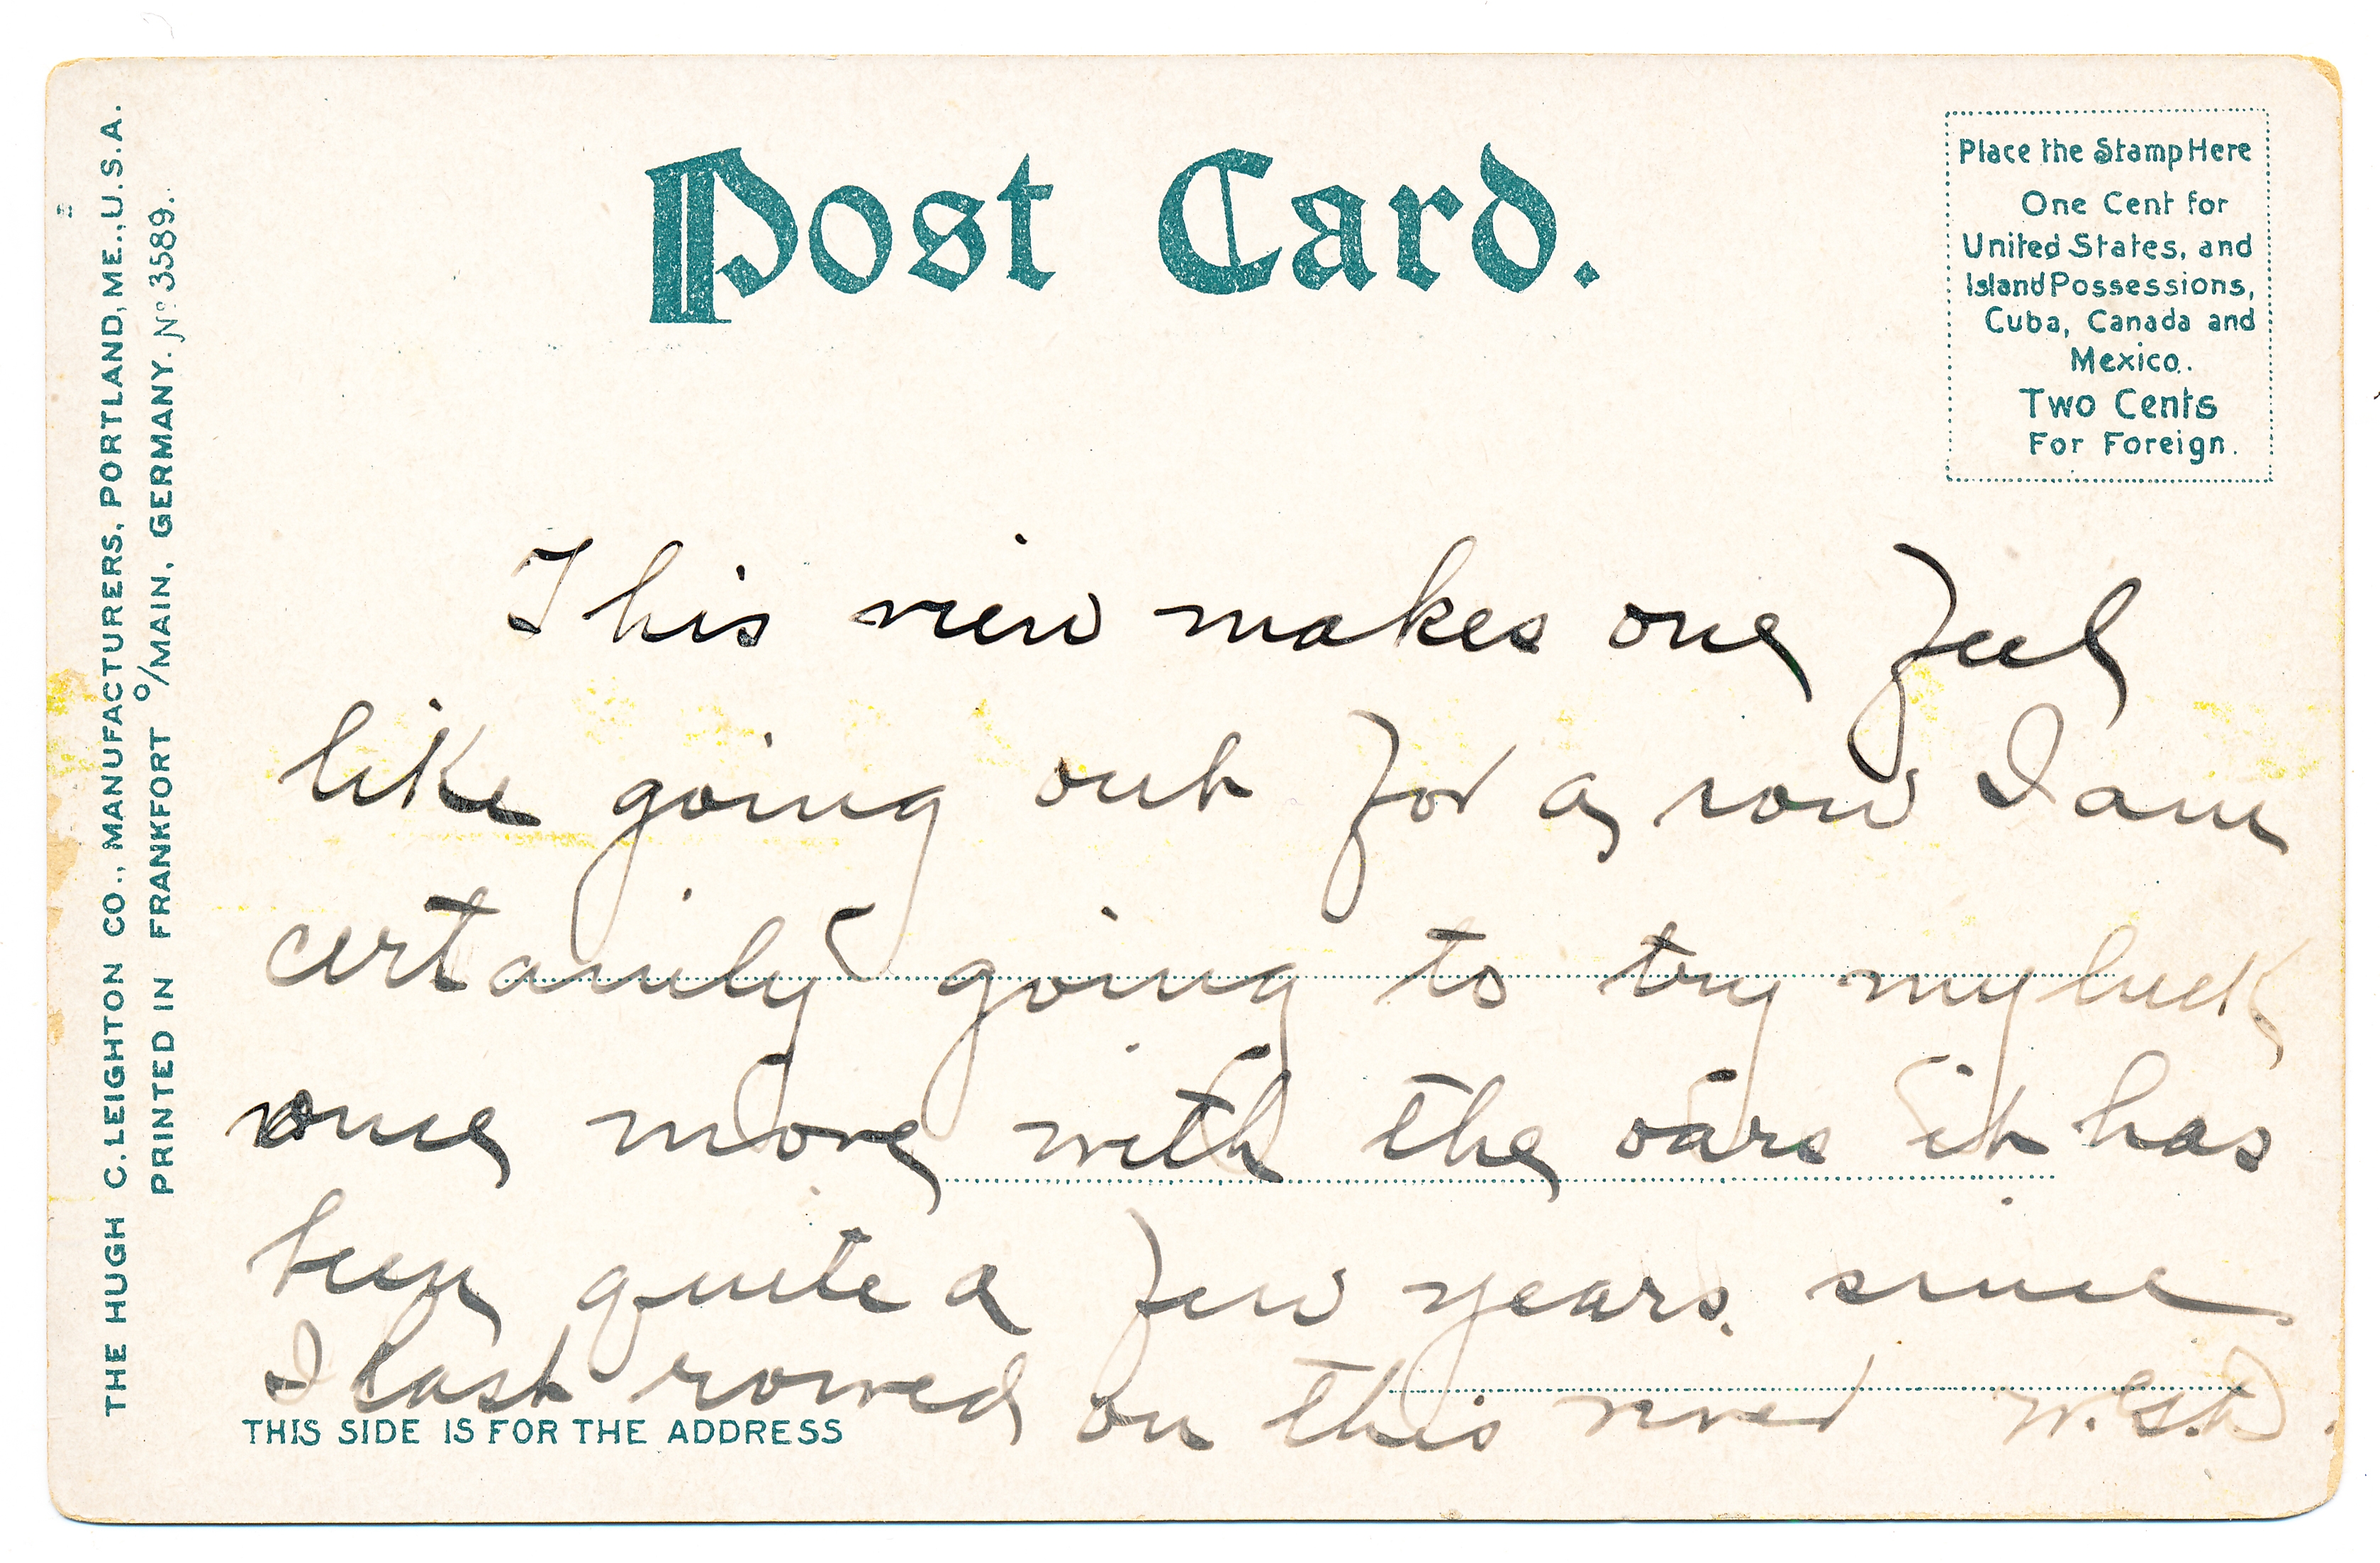 Post Card.
Place the Stamp Here
One Cent for
United States, and
Island Possessions,
Cuba, Canada and
Mexico.
Two Cents
For Foreign.
THE HUGH C. LEIGHTON CO., MANUFACTURERS, PORTLAND, ME., U.S.A.
PRINTED IN FRANKFORT o/MAIN, GERMANY. No 3589.
This view makes one feel
like going out for a row I am
certainly going to try my luck
once more with the oars it has
been quite a few years. since
I last rowed on this river
THIS SIDE IS FOR THE ADDRESS